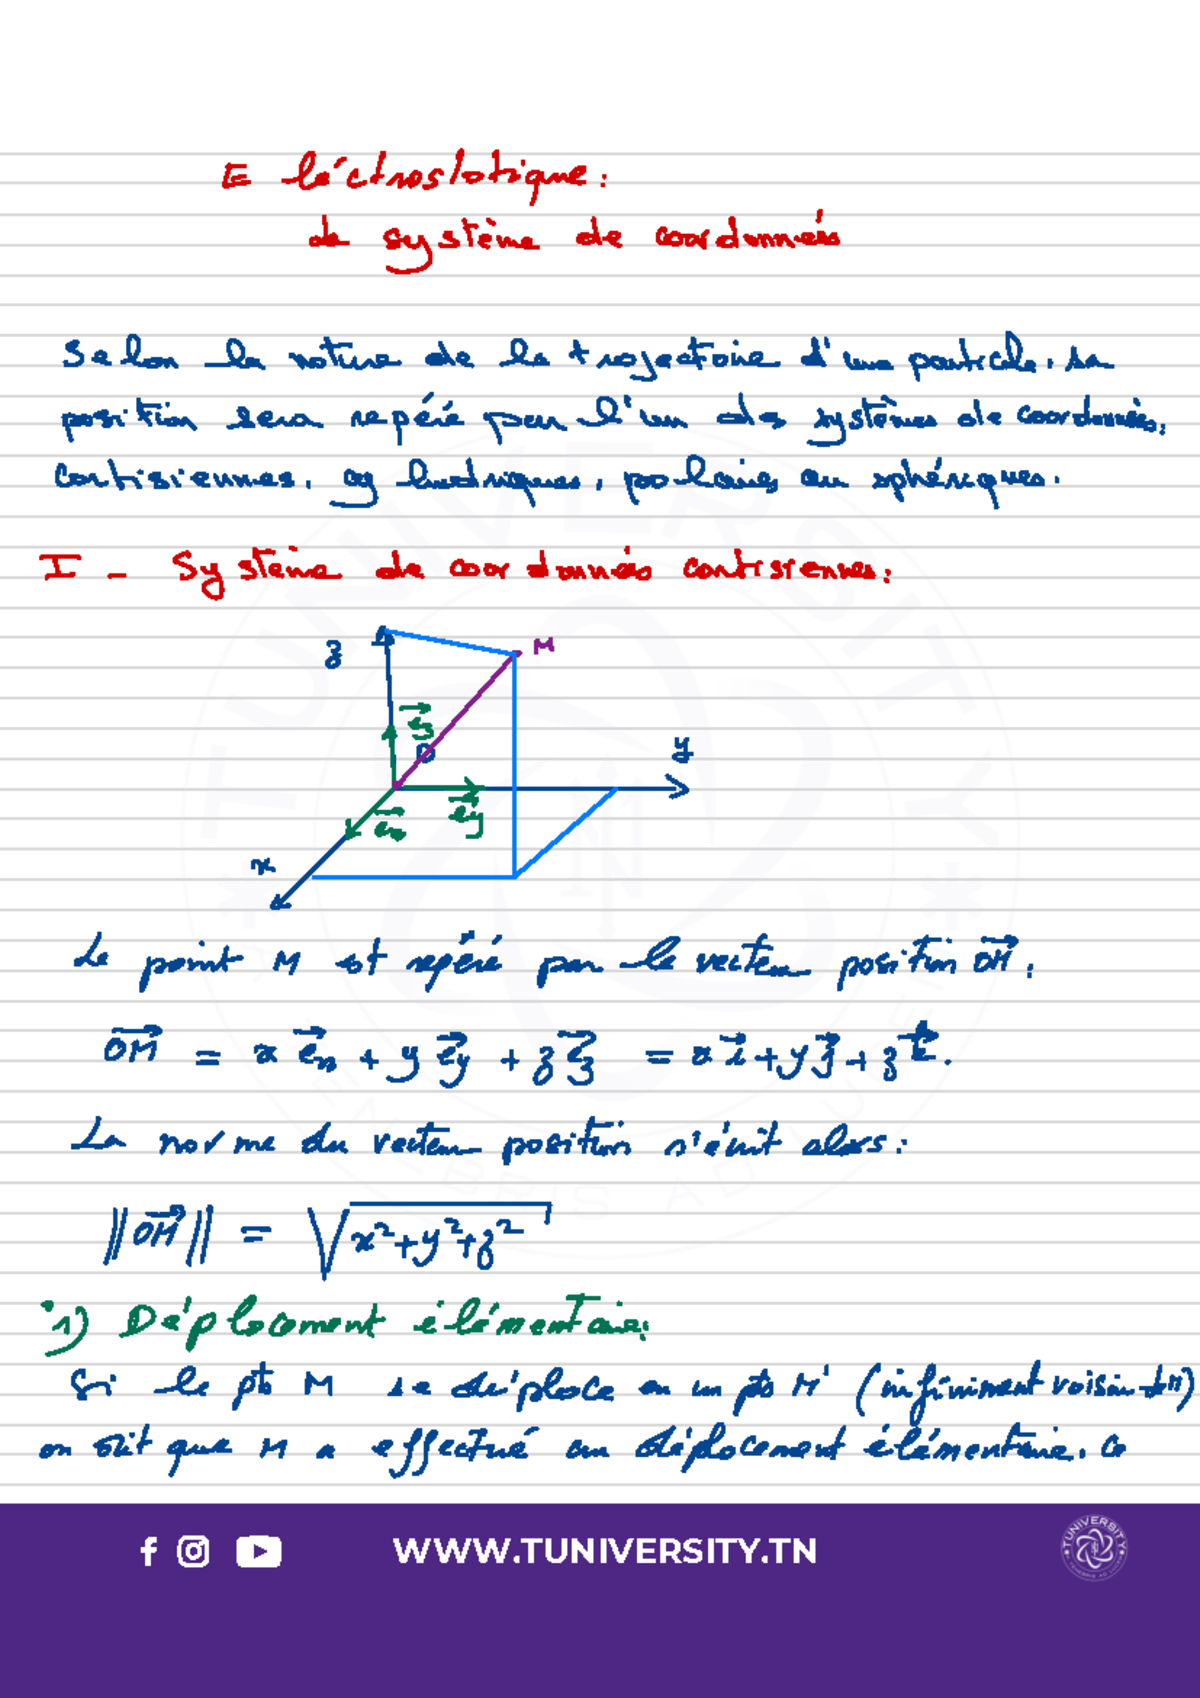 Eléctrostatique:
Le système de coordonnées
Selon la nature de la trajectoire d'une particule, sa
position sera repéré par l'un des systèmes de coordonnées,
cartisiennes, cylindriques, polaires ou sphériques.
I - Système de coordonnées cartisiennes:
z M
e⃗z
O y
e⃗x e⃗y
x
Le point M est repéré par le vecteur position O⃗M⃗,
O⃗M⃗ = x e⃗x + y e⃗y + z e⃗z = x i⃗ + y j⃗ + z k⃗.
La norme du vecteur position s'écrit alors:
||O⃗M⃗|| = √x²+y²+z²
1) Déplacement élémentaire:
Si le pt M se déplace en un pt M' (infiniment voisin de M)
on dit que M a effectué un déplacement élémentaire. Ce
WWW.TUNIVERSITY.TN
TUNIVERSITY